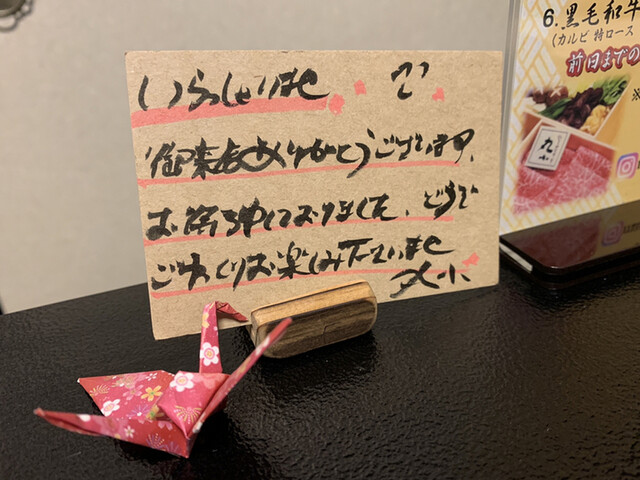 いらっしゃいませ
御来店ありがとうございます。
お待ち申しておりました、どうぞ
ごゆっくりお楽しみ下さいませ
丸小
6.黒毛和牛
(カルビ 特ロース
前日までの
※
丸小